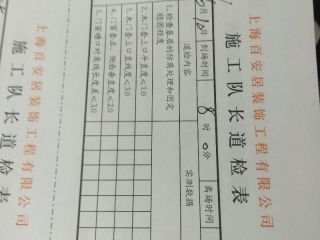 上海百安居装饰工程有限公司
施工队长道检表
月10日
到场时间
8时0分
离场时间
道检内容
实测数据
1、检查基层的防腐处理和固定
稳固程度
2、木门套上口平直度≤1.0
3、木门套上口直线度≤3.0
4、门窗套正、侧面垂直≤2.0
5、门窗槽口对角线长度差≤3.0
上海百安居装饰工程有限公司
施工队长道检表